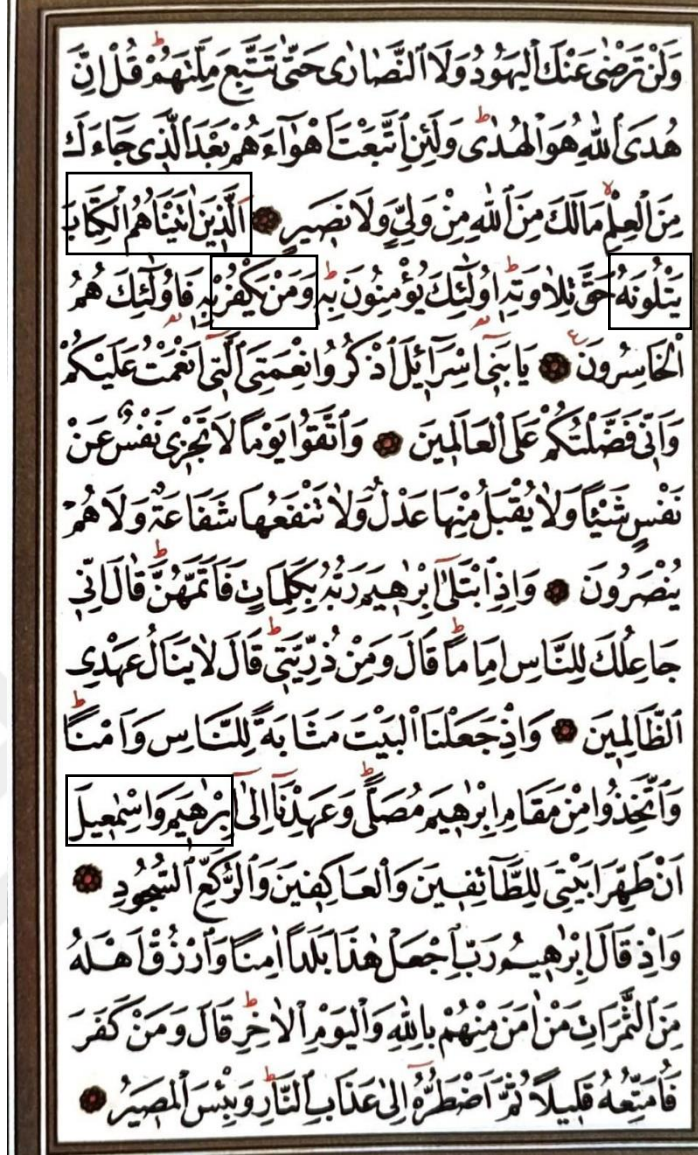 وَلَنْ تَرْضٰى عَنْكَ الْيَهُودُ وَلَا النَّصَارٰى حَتّٰى تَتَّبِعَ مِلَّتَهُمْ ط قُلْ اِنَّ
هُدَى اللّٰهِ هُوَ الْهُدٰى ط وَلَئِنِ اتَّبَعْتَ اَهْوَٓاءَهُمْ بَعْدَ الَّذِى جَٓاءَكَ
مِنَ الْعِلْمِ لا مَا لَكَ مِنَ اللّٰهِ مِنْ وَلِيٍّ وَلَا نَصِيرٍ ۝ اَلَّذِينَ اٰتَيْنَاهُمُ الْكِتَابَ
يَتْلُونَهُ حَقَّ تِلَاوَتِهِ ط اُولٰٓئِكَ يُؤْمِنُونَ بِهِ ط وَمَنْ يَكْفُرْ بِهِ فَاُولٰٓئِكَ هُمُ
الْخَاسِرُونَ ع ۝ يَا بَنِٓى اِسْرَٓائِلَ اذْكُرُوا نِعْمَتِىَ الَّتِٓى اَنْعَمْتُ عَلَيْكُمْ
وَاَنِّى فَضَّلْتُكُمْ عَلَى الْعَالَمِينَ ۝ وَاتَّقُوا يَوْمًا لَا تَجْزِى نَفْسٌ عَنْ
نَفْسٍ شَيْئًا وَلَا يُقْبَلُ مِنْهَا عَدْلٌ وَلَا تَنْفَعُهَا شَفَاعَةٌ وَلَا هُمْ
يُنْصَرُونَ ۝ وَاِذِ ابْتَلٰٓى اِبْرٰهِيمَ رَبُّهُ بِكَلِمَاتٍ فَاَتَمَّهُنَّ ط قَالَ اِنِّى
جَاعِلُكَ لِلنَّاسِ اِمَامًا ط قَالَ وَمِنْ ذُرِّيَّتِى ط قَالَ لَا يَنَالُ عَهْدِى
الظَّالِمِينَ ۝ وَاِذْ جَعَلْنَا الْبَيْتَ مَثَابَةً لِلنَّاسِ وَاَمْنًا ط
وَاتَّخِذُوا مِنْ مَقَامِ اِبْرٰهِيمَ مُصَلًّى ط وَعَهِدْنَٓا اِلٰٓى اِبْرٰهِيمَ وَاِسْمٰعِيلَ
اَنْ طَهِّرَا بَيْتِىَ لِلطَّٓائِفِينَ وَالْعَاكِفِينَ وَالرُّكَّعِ السُّجُودِ ۝
وَاِذْ قَالَ اِبْرٰهِيمُ رَبِّ اجْعَلْ هٰذَا بَلَدًا اٰمِنًا وَارْزُقْ اَهْلَهُ
مِنَ الثَّمَرَاتِ مَنْ اٰمَنَ مِنْهُمْ بِاللّٰهِ وَالْيَوْمِ الْاٰخِرِ ط قَالَ وَمَنْ كَفَرَ
فَاُمَتِّعُهُ قَلِيلًا ثُمَّ اَضْطَرُّهُٓ اِلٰى عَذَابِ النَّارِ ط وَبِئْسَ الْمَصِيرُ ۝